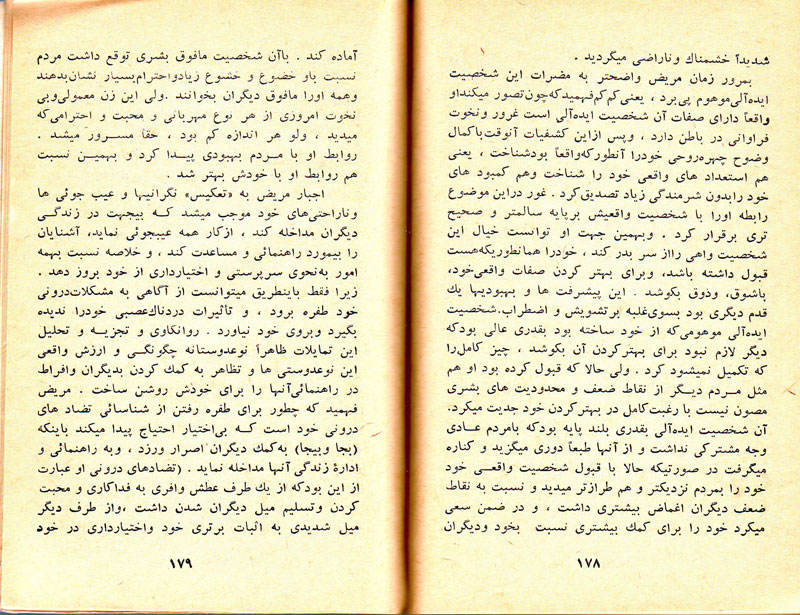 شدیداً خشمناك وناراضی میگردید .
بمرور زمان مریض واضحتر به مضرات این شخصیت
ایده‌آلی موهوم پی‌برد ، یعنی کم‌کم فهمیدکه‌چون‌تصور میکنداو
واقعاً دارای صفات آن شخصیت ایده‌آلی است غرور ونخوت
فراوانی در باطن دارد ، وپس ازاین کشفیات آنوقت‌باکمال
وضوح چهره‌روحی خودرا آنطورکه‌واقعاً بودشناخت ، یعنی
هم استعداد های واقعی خود را شناخت وهم کمبود های
خود رابدون شرمندگی زیاد تصدیق‌کرد . غور دراین موضوع
رابطه اورا با شخصیت واقعیش برپایه سالمتر و صحیح
تری برقرار کرد . وبهمین جهت او توانست خیال این
شخصیت واهی رااز سر بدر کند ، خودرا همانطوریکه‌هست
قبول داشته باشد، وبرای بهتر کردن صفات واقعی‌خود،
باشوق، وذوق بکوشد . این پیشرفت ها و بهبودیها یك
قدم دیگری بود بسوی‌غلبه برتشویش و اضطراب.شخصیت
ایده‌آلی موهومی‌که از خود ساخته بود بقدری عالی بودکه
دیگر لازم نبود برای بهترکردن آن بکوشد ، چیز کامل‌را
که تکمیل نمیشود کرد . ولی حالا که قبول کرده بود او هم
مثل مردم دیگر از نقاط ضعف و محدودیت های بشری
مصون نیست با رغبت‌کامل در بهترکردن خود جدیت میکرد.
آن شخصیت ایده‌آلی بقدری بلند پایه بودکه بامردم عادی
وجه مشترکی نداشت و از آنها طبعاً دوری میگزید و کناره
میگرفت در صورتیکه حالا با قبول شخصیت واقعی خود
خود را بمردم نزدیکتر و هم طرازتر میدید و نسبت به نقاط
ضعف دیگران اغماض بیشتری داشت ، و در ضمن سعی
میکرد خود را برای کمك بیشتری نسبت بخود ودیگران
۱۷۸
آماده کند . باآن شخصیت مافوق بشری توقع داشت مردم
نسبت باو خضوع و خشوع زیادواحترام‌بسیار نشان‌بدهند
وهمه اورا مافوق دیگران بخوانند .ولی این زن معمولی‌وبی
نخوت امروزی از هر نوع مهربانی و محبت و احترامی‌که
میدید ، ولو هر اندازه کم بود ، حقاً مسرور میشد .
روابط او با مردم بهبودی پیدا کرد و بهمین نسبت
هم روابط او با خودش بهتر شد .
اجبار مریض به «تعکیس» نگرانیها و عیب جوئی ها
وناراحتی‌های خود موجب میشد که بیجهت در زندگی
دیگران مداخله کند ، ازکار همه عیبجوئی نماید، آشنایان
را بیمورد راهنمائی و مساعدت کند ، و خلاصه نسبت بهمه
امور به‌نحوی سرپرستی و اختیارداری از خود بروز دهد .
زیرا فقط باینطریق میتوانست از آگاهی به مشکلات‌درونی
خود طفره برود ، و تأثیرات دردناك‌عصبی خودرا ندیده
بگیرد وبروی خود نیاورد . روانکاوی و تجزیه و تحلیل
این تمایلات ظاهراً نوعدوستانه چگونگی و ارزش واقعی
این نوعدوستی ها و تظاهر به کمك کردن بدیگران وافراط
در راهنمائی‌آنها را برای خودش روشن ساخت . مریض
فهمید که چطور برای طفره رفتن از شناسائی تضاد های
درونی خود است که بی‌اختیار احتیاج پیدا میکند باینکه
(بجا وبیجا) به‌کمك دیگران اصرار ورزد ، وبه راهنمائی و
ادارهٔ زندگی آنها مداخله نماید . (تضادهای درونی او عبارت
از این بودکه از یك طرف عطش وافری به فداکاری و محبت
کردن وتسلیم میل دیگران شدن داشت ،واز طرف دیگر
میل شدیدی به اثبات برتری خود واختیارداری در خود
۱۷۹